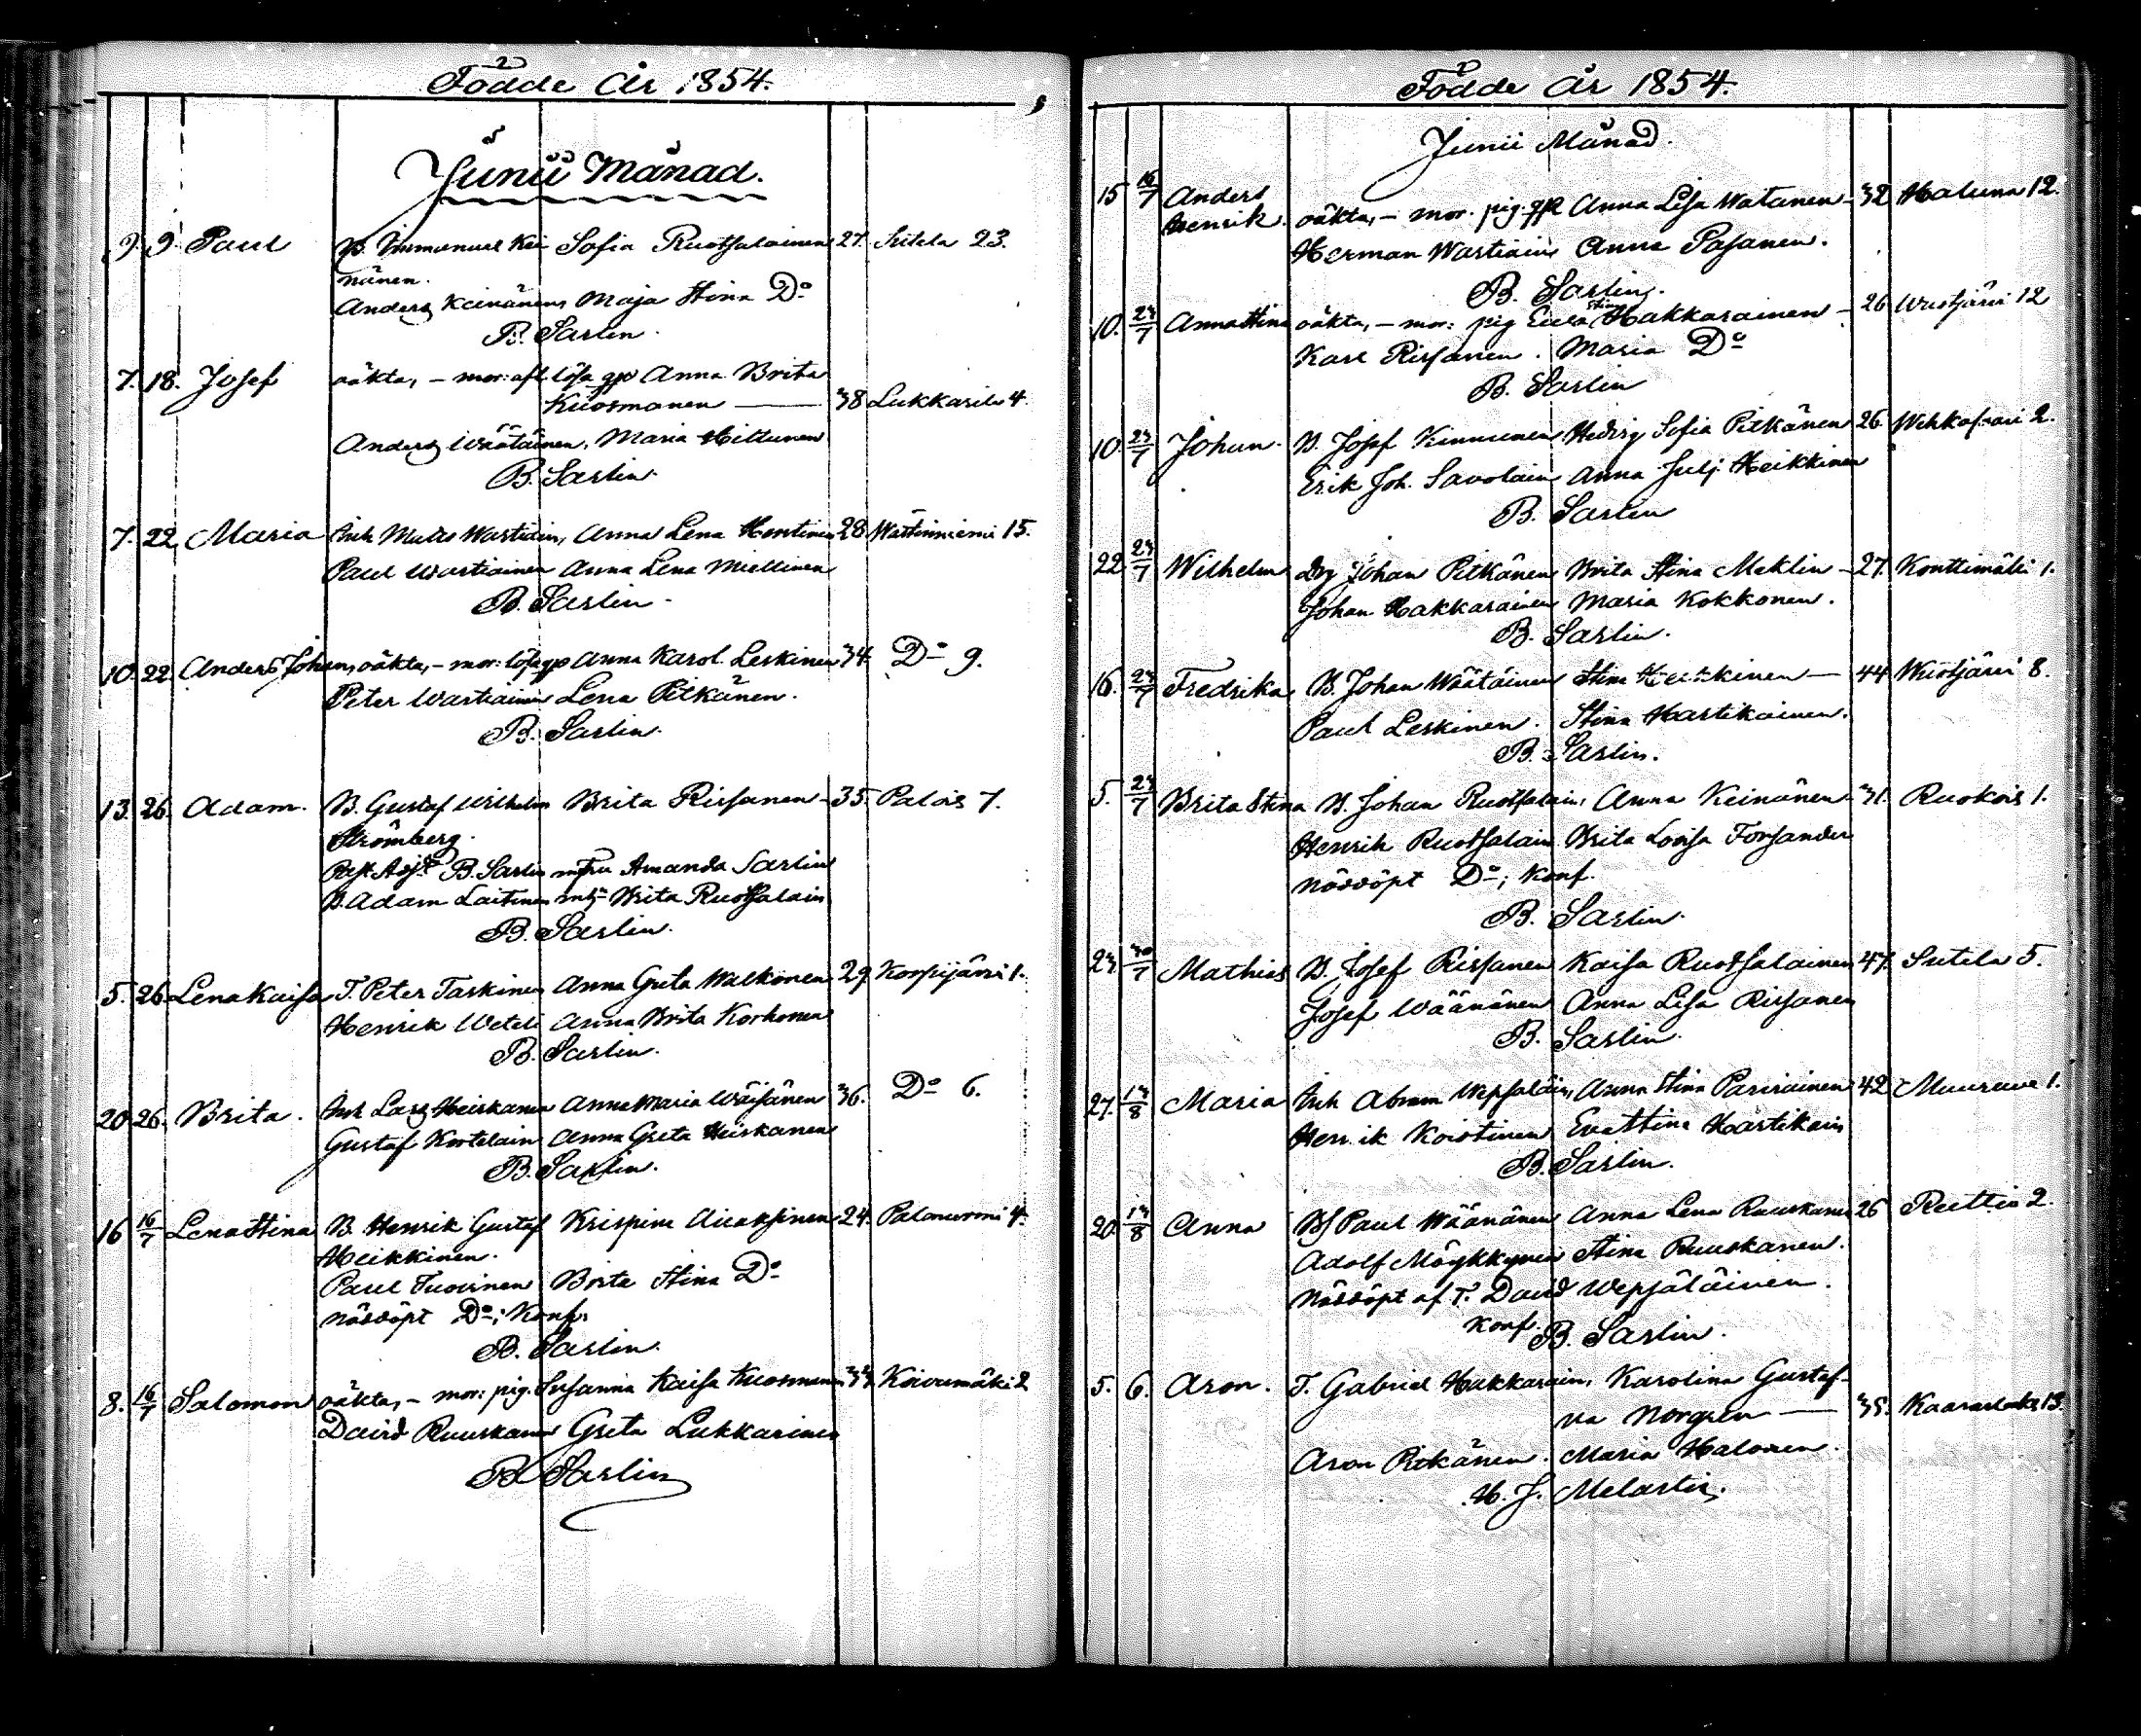 Födde År 1854.
Junii Månad.
9. 9. Paul B. Immanuel Kei Sofia Ruotsalainen 27. Sutela 23.
nänen.
Anders Keinänen, Maja Stina Do
B. Sarlin.
7. 18. Josef oäkta, – mor: afl. lösa gp Anna Brita
Kuosmanen — 38 Lukkarila 4.
Anders Väätäinen, Maria Hiltunen
B. Sarlin.
7. 22. Maria Inh Wartiain, Anna Lena Hentinen 28 Västinniemi 15.
Paul Wartiainen Anna Lena Miettinen
B. Sarlin.
10. 22. Anders Johan, oäkta, – mor: lösa gp Anna Karol. Leskinen 34. Do 9.
Peter Wartiainen Lena Pitkänen.
B. Sarlin.
13. 26. Adam. B. Gustaf Wilhelm Brita Rissanen – 35. Palois 7.
Strömberg.
Adj. B. Sarlin m. fru Amanda Sarlin
B. Adam Laitinen Brita Ruotsalain
B. Sarlin.
5. 26. Lena Kaisa T. Peter Taskinen Anna Greta Walkonen 29. Korpijärvi 1.
Henrik Weteli Anna Brita Korhonen
B. Sarlin.
20. 26. Brita. Inh Lars Heiskanen Anna Maria Wäisänen 36. Do 6.
Gustaf Kortelain Anna Greta Heiskanen
B. Sarlin.
16 16/7 Lena Stina B. Henrik Gustaf Krispina Airaksinen 24. Palonurmi 4.
Heikkinen.
Paul Tuovinen Brita Stina Do
nöddöpt Do; Konf.
B. Sarlin.
8. 16/7 Salomon oäkta, – mor: pig. Susanna Kaisa Kuosmanen Koivumäki 2
David Ruuskanen Greta Lukkarinen
B. Sarlin
Födde År 1854.
Junii Månad.
15 16/7 Anders
Henrik. oäkta, – mor. pig. Anna Lisa Watanen – 32 Haluna 12.
Herman Wartiain, Anna Pasanen.
B. Sarlin.
10. 23/7 Anna Stina oäkta, – mor: pig Eva Stina Hakkarainen – 26 Wuotjärvi 12
Karl Rissanen. Maria Do
B. Sarlin
10. 23/7 Johan. B. Josef Kinnunen Hedvig Sofia Pitkänen 26. Wehkasaari 2.
Erik Joh. Savolain Anna Julj. Heikkinen
B. Sarlin
22 23/7 Wilhelm Johan Pitkänen Brita Stina Meklin – 27. Konttimäki 1.
Johan Hakkarainen Maria Kokkonen.
B. Sarlin.
16. 23/7 Fredrika B. Johan Väätäinen Stina — 44 Wuotjärvi 8.
Paul Leskinen. Stina Hartikainen.
B. Sarlin.
5. 23/7 Brita Stina B. Johan Ruotsalain, Anna Keinänen 31. Ruokois 1.
Henrik Ruotsalain Brita Lovisa Forsander
nöddöpt Do; Konf.
B. Sarlin.
23 30/7 Mathias B. Josef Rissanen Kaisa Ruotsalainen 47. Sutela 5.
Josef Wäänänen Anna Lisa Rissanen
B. Sarlin.
27. 13/8 Maria Inh Abram Wepsäläin, Anna Stina Parviainen 42 Muuruve 1.
Henrik Koistinen Eva Stina Hartikain
B. Sarlin.
20. 13/8 Anna Paul Wäänänen Anna Lena Ruuskanen 26 Reittiö 2.
Adolf Möykkynen Stina Ruuskanen.
nöddöpt af T. David Wepsäläinen.
Konf. B. Sarlin.
5. 6. Aron. T. Gabriel Hakkarain, Karolina Gustaf-
va Norgren — 35. Kaaraslahti 13.
Aron Pitkänen. Maria Halonen.
H. J. Melartin.